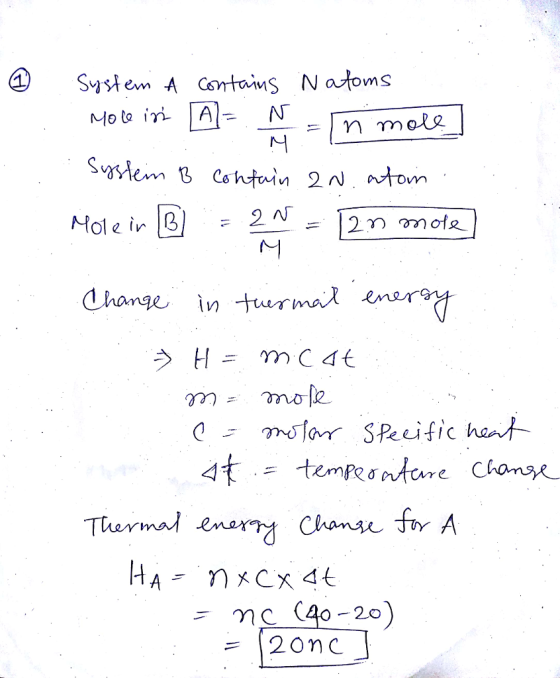 ① System A contains N atoms
Mole in A = N/M = n mole
System B contain 2N atom
Mole in B = 2N/M = 2n mole
Change in thermal energy
⇒ H = mcΔt
m = mole
C = molar specific heat
Δt = temperature change
Thermal energy change for A
HA = n×C×Δt
= nc (40-20)
= 20nc